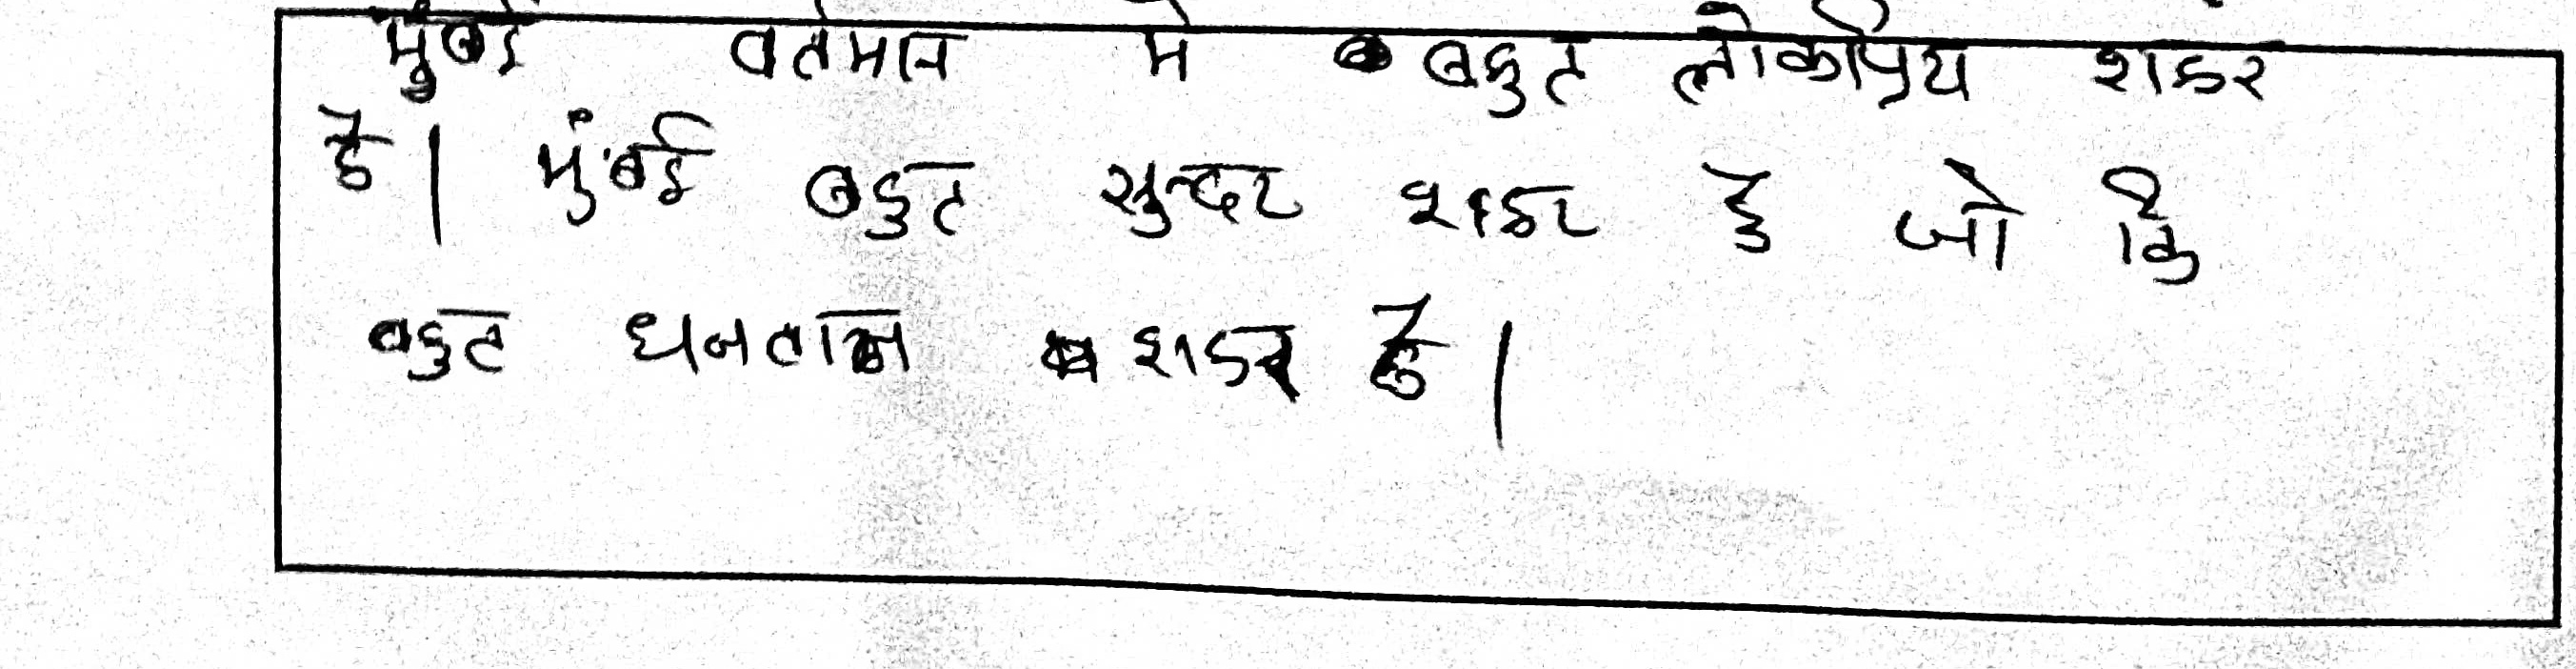 मुंबई वर्तमान मे बहुत लोकप्रिय शहर
है। मुंबई बहुत सुन्दर शहर है जो कि
बहुत धनवान शहर है।